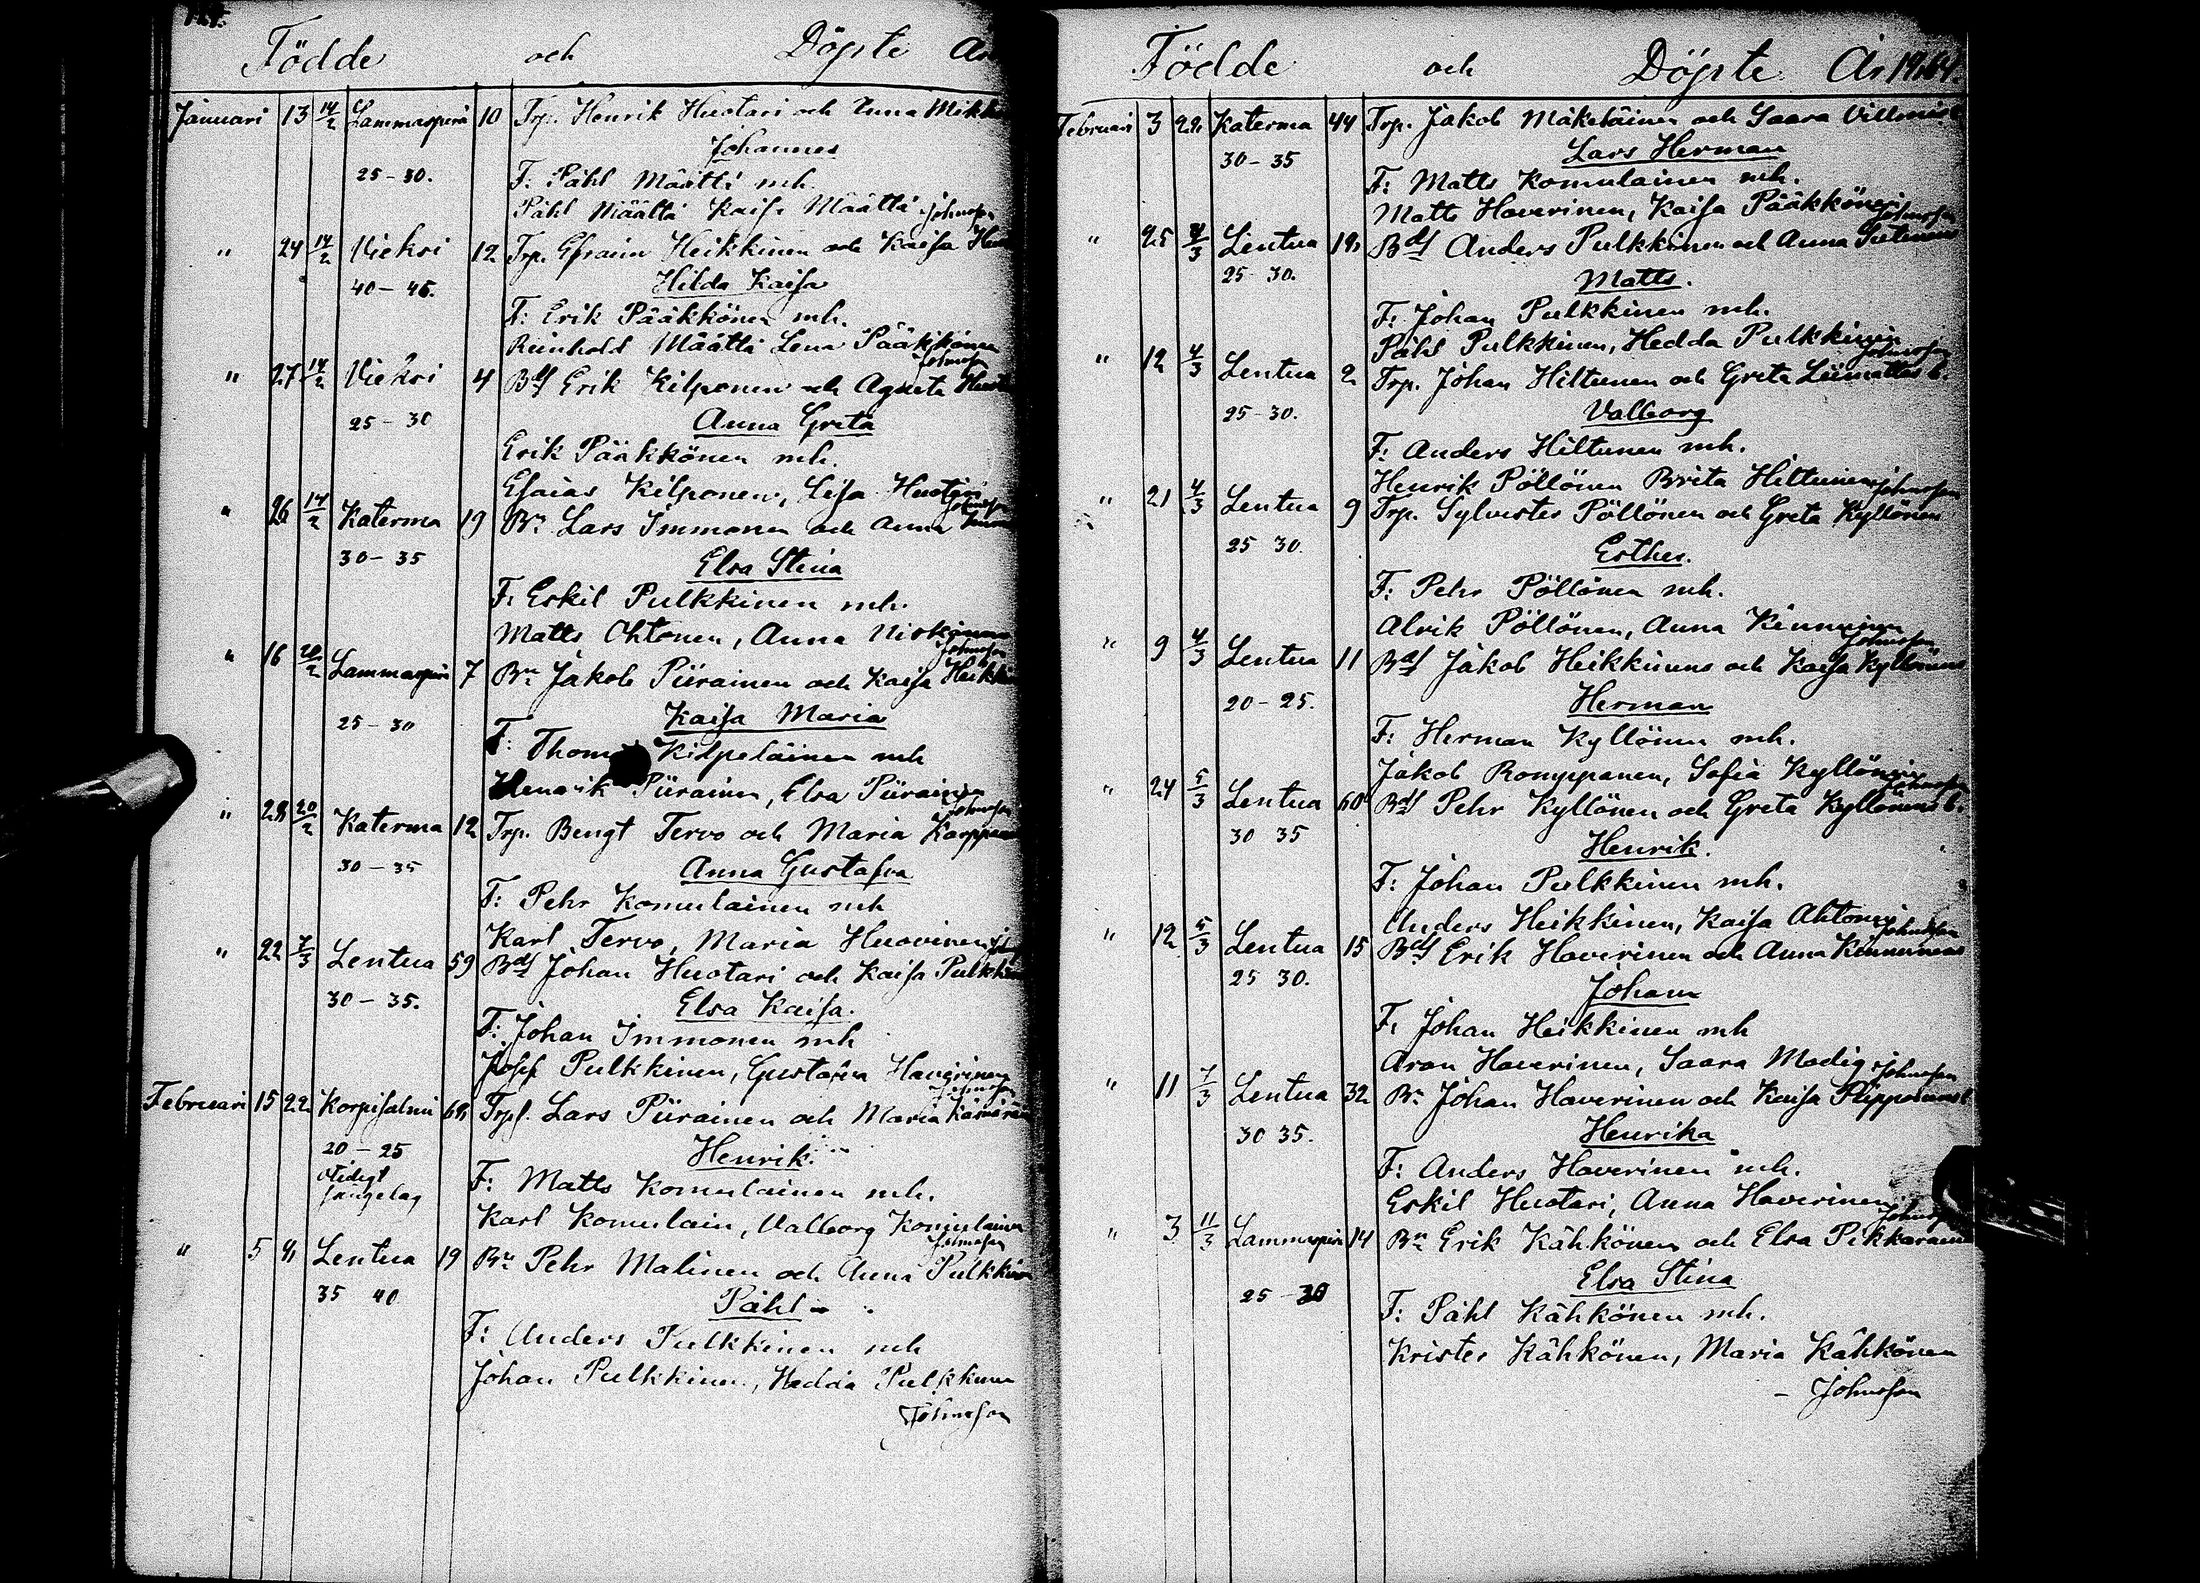 Födde och Döpte År
Januari 13 14/2 Lammasperä 10 Trp. Henrik Huotari och Anna
Johannes
25-30. F: Påhl Määttä mh.
Påhl Määttä Kaisa Määttä Johnsson
" 24 14/2 Vieksi 12 Trp. Efraim Heikkinen och Kaisa
Hilda Kaisa
40-45.
F: Erik Pääkkönen mh.
Reinhold Määttä Lena Pääkkönen
Johnsson
" 27 14/2 Vieksi 4 Bds Erik Kilponen och Agneta
25-30 Anna Greta
Erik Pääkkönen mh.
Esaias Kilponen, Lisa Huotari
Johnsson
" 26 14/2 Katerma 19 Bn Lars Immonen och Anna
30-35 Elsa Stina
F: Eskil Pulkkinen mh.
Matts Ohtonen, Anna
Johnsson
" 16 20/2 Lammasperä 7 Bn Jakob Piirainen och Kaisa
25-30 Kaisa Maria
F: Kilpeläinen mh
Henrik Piirainen, Elsa Piirainen
Johnsson
" 28 20/2 Katerma 12 Trp. Bengt Tervo och Maria
30-35 Anna Gustafva
F: Pehr Komulainen mh
Karl Tervo, Maria Huovinen
" 22 7/3 Lentua 59 Bds Johan Huotari och Kaisa
30-35. Elsa Kaisa.
F: Johan Immonen mh
Josef Pulkkinen, Gustafva Haverinen
Johnsson
Februari 15 22 Korpisalmi 68 Trpl. Lars Piirainen och Maria
20-25 Henrik.
F: Matts Komulainen mh.
Karl Komulain, Valborg Komulainen
Johnsson
" 5 Lentua 19 Bn Pehr Malinen och Anna
35 40 Påhl
F: Anders Pulkkinen mh
Johan Pulkkinen, Hedda Pulkkinen
Johnsson
Födde och Döpte År
Februari 3 22 Katerma 44 Trp. Jakob Mäkeläinen och Saara
30-35 Lars Herman
F: Matts Komulainen mh.
Matts Haverinen, Kaisa Pääkkönen
Johnsson
" 25 4/3 Lentua 19 Bds Anders Pulkkinen och Anna
25 30. Matts.
F: Johan Pulkkinen mh.
Påhl Pulkkinen, Hedda Pulkkinen
Johnsson
" 12 4/3 Lentua 2 Trp. Johan Hiltunen och Greta
25-30. Valborg
F: Anders Hiltunen mh.
Henrik Pöllönen Brita Hiltunen Johnsson
" 21 4/3 Lentua 9 Trp. Sylvester Pöllönen och Greta Kyllönen
25 30. Esther.
F: Pehr Pöllönen mh.
Alrik Pöllönen, Anna Kinnunen
Johnsson
" 9 4/3 Lentua 11 Bds Jakob Heikkinens och Kaisa Kyllönens
20-25. Herman
F: Herman Kyllönen mh.
Jakob Romppanen, Sofia Kyllönen
Johnsson
" 24 5/3 Lentua 60 Bds Pehr Kyllönen och Greta Kyllönens b.
30 35 Henrik.
F: Johan Pulkkinen mh.
Anders Heikkinen, Kaisa Ahtonen
Johnsson
" 12 5/3 Lentua 15 Bds Erik Haverinen och Anna Kinnunens
25 30. Johan
F: Johan Heikkinen mh
Aron Haverinen, Saara Modig Johnsson
" 11 7/3 Lentua 32 Bn Johan Haverinen och Kaisa
30 35. Henrika
F: Anders Haverinen mh.
Eskil Huotari, Anna Haverinen
Johnsson
" 3 11/3 Lammasperä 14 Bn Erik Kähkönen och Elsa
25-30 Elsa Stina
F: Påhl Kähkönen mh.
Krister Kähkönen, Maria Kähkönen
Johnsson